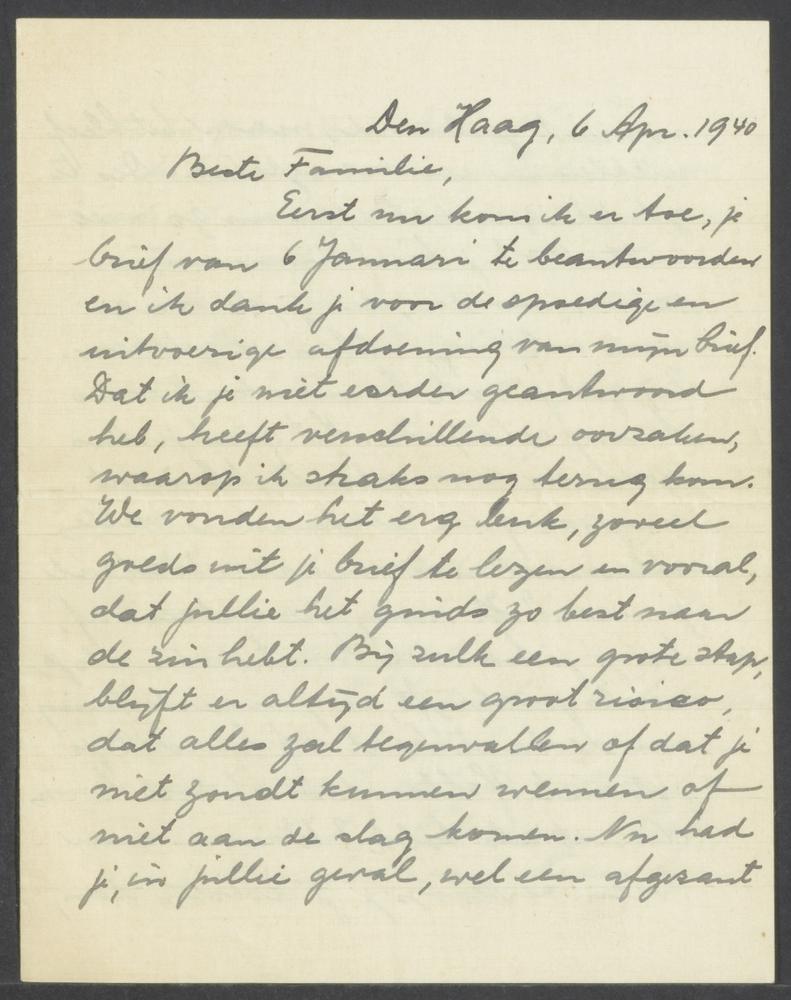 Den Haag, 6 Apr. 1940
Beste Familie,
Eerst nu kom ik er toe, je
brief van 6 Januari te beantwoorden
en ik dank je voor de spoedige en
uitvoerige afdoening van mijn brief.
Dat ik je niet eerder geantwoord
heb, heeft verschillende oorzaken,
waarop ik straks nog terug kom.
We vonden het erg leuk, zoveel
goeds uit je brief te lezen en vooral,
dat jullie het ginds zo best naar
de zin hebt. Bij zulk een grote stap,
blijft er altijd een groot risico,
dat alles zal tegenvallen of dat je
niet zoudt kunnen wennen of
niet aan de slag komen. Nu had
je, in jullie geval, wel een afgezant